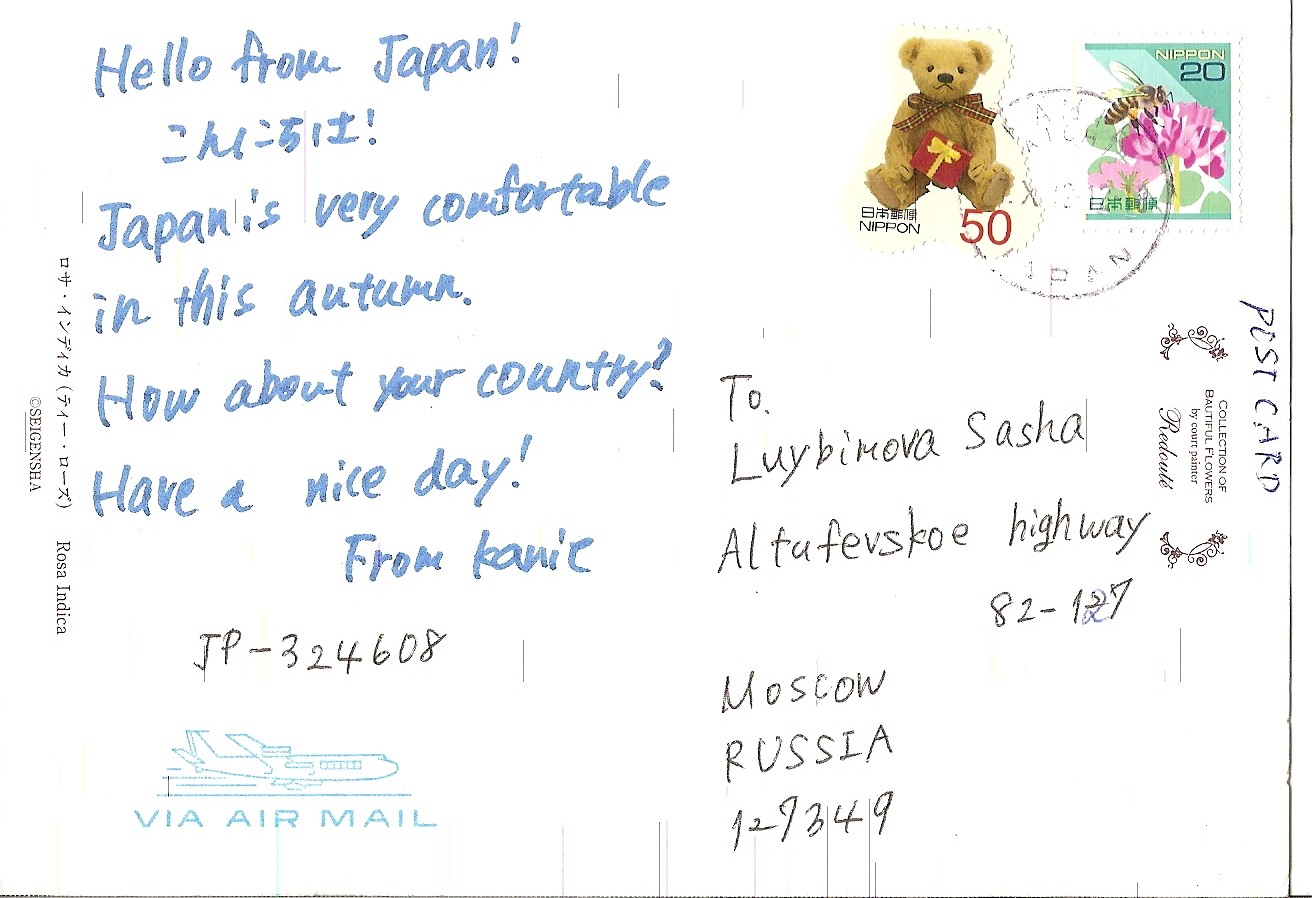 Hello from Japan!
こんにちは!
Japan is very comfortable
in this autumn.
How about your country?
Have a nice day!
From kanie
JP-324608
VIA AIR MAIL
ロサ・インディカ (ティー・ローズ) Rosa Indica
©SEIGENSHA
日本郵便
NIPPON
50
NIPPON
20
日本郵便
JAPAN
POST CARD
COLLECTION OF
BAUTIFUL FLOWERS
by court painter
Redouté
To.
Luybimova Sasha
Altufevskoe highway
82-127
Moscow
RUSSIA
127349